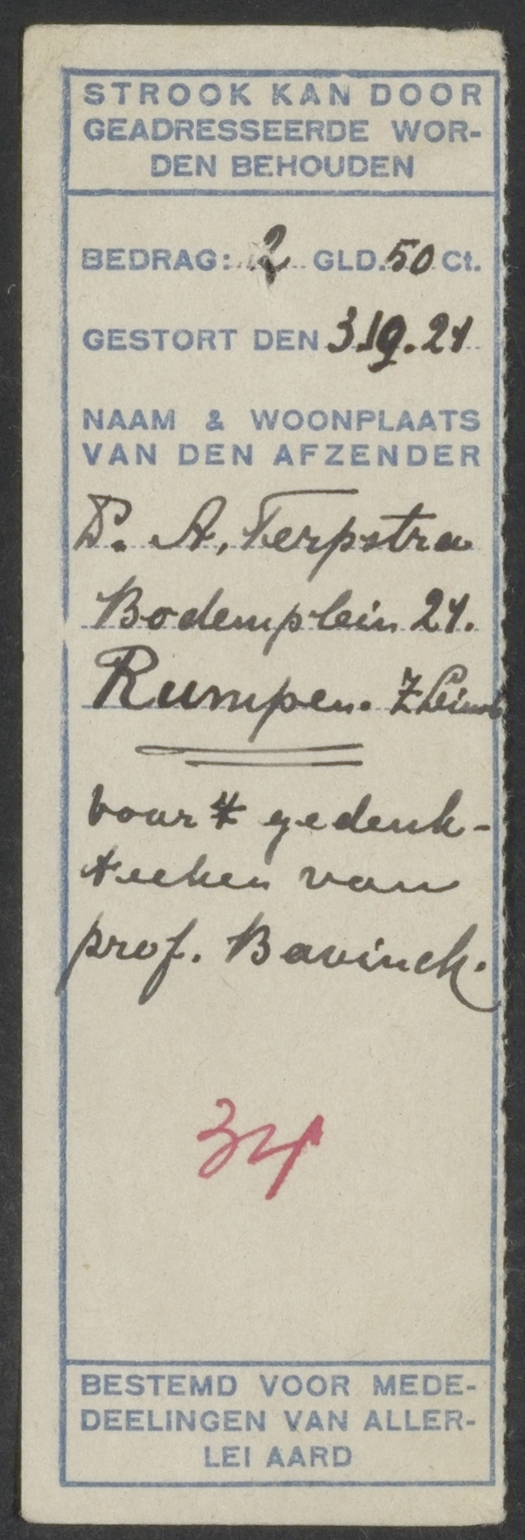 STROOK KAN DOOR
GEADRESSEERDE WOR-
DEN BEHOUDEN
BEDRAG: 2 GLD. 50 Ct.
GESTORT DEN 3.19.21
NAAM & WOONPLAATS
VAN DEN AFZENDER
A. Terpstra
Bodemplein 21.
Rumpen. Z Limb
voor 't gedenk-
teeken van
prof. Bavinck.
34
BESTEMD VOOR MEDE-
DEELINGEN VAN ALLER-
LEI AARD